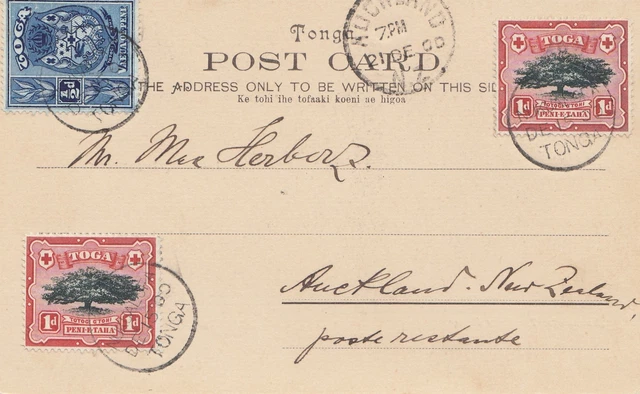 TOGA
½d
Tonga.
POST CARD.
THE ADDRESS ONLY TO BE WRITTEN ON THIS SID
Ke tohi ihe tofaaki koeni ae higoa
AUCKLAND
7 PM
21 DE
N.Z
TOGA
1d 1d
PENI-E-TAHA
TONGA
TONGA
Mr. Max Herborz.
TOGA
1d 1d
PENI-E-TAHA
TONGA
Auckland. New Zealand,
poste restante